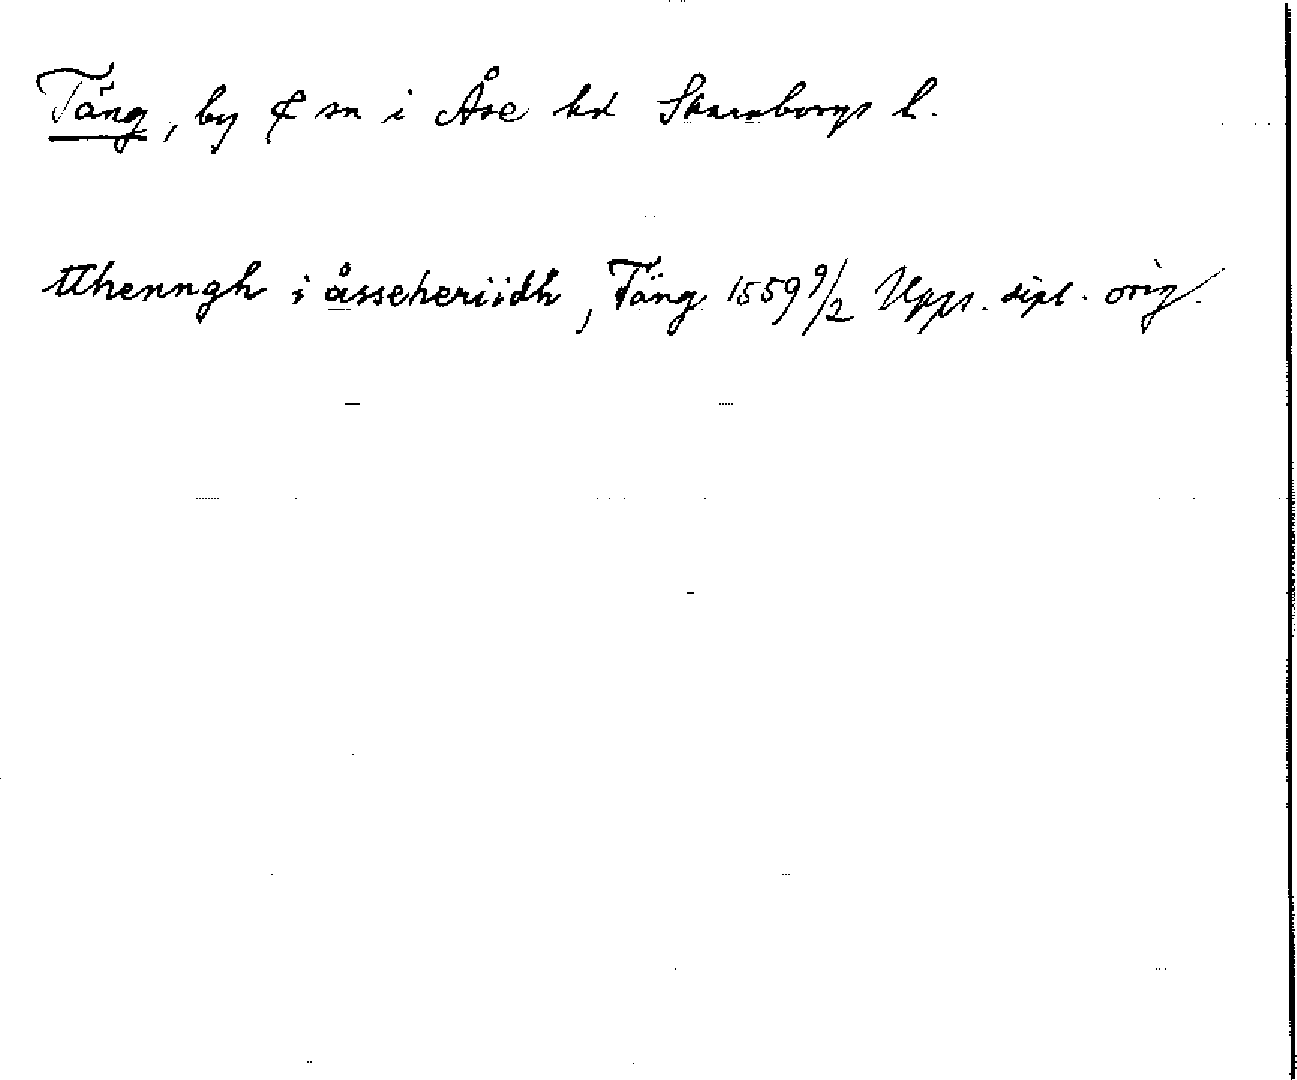 Täng, by & sn i Åse hd Skaraborgs l.
tthenngh i åsseheriidh, Täng 1559 9/2 Upps. dipl. orig.